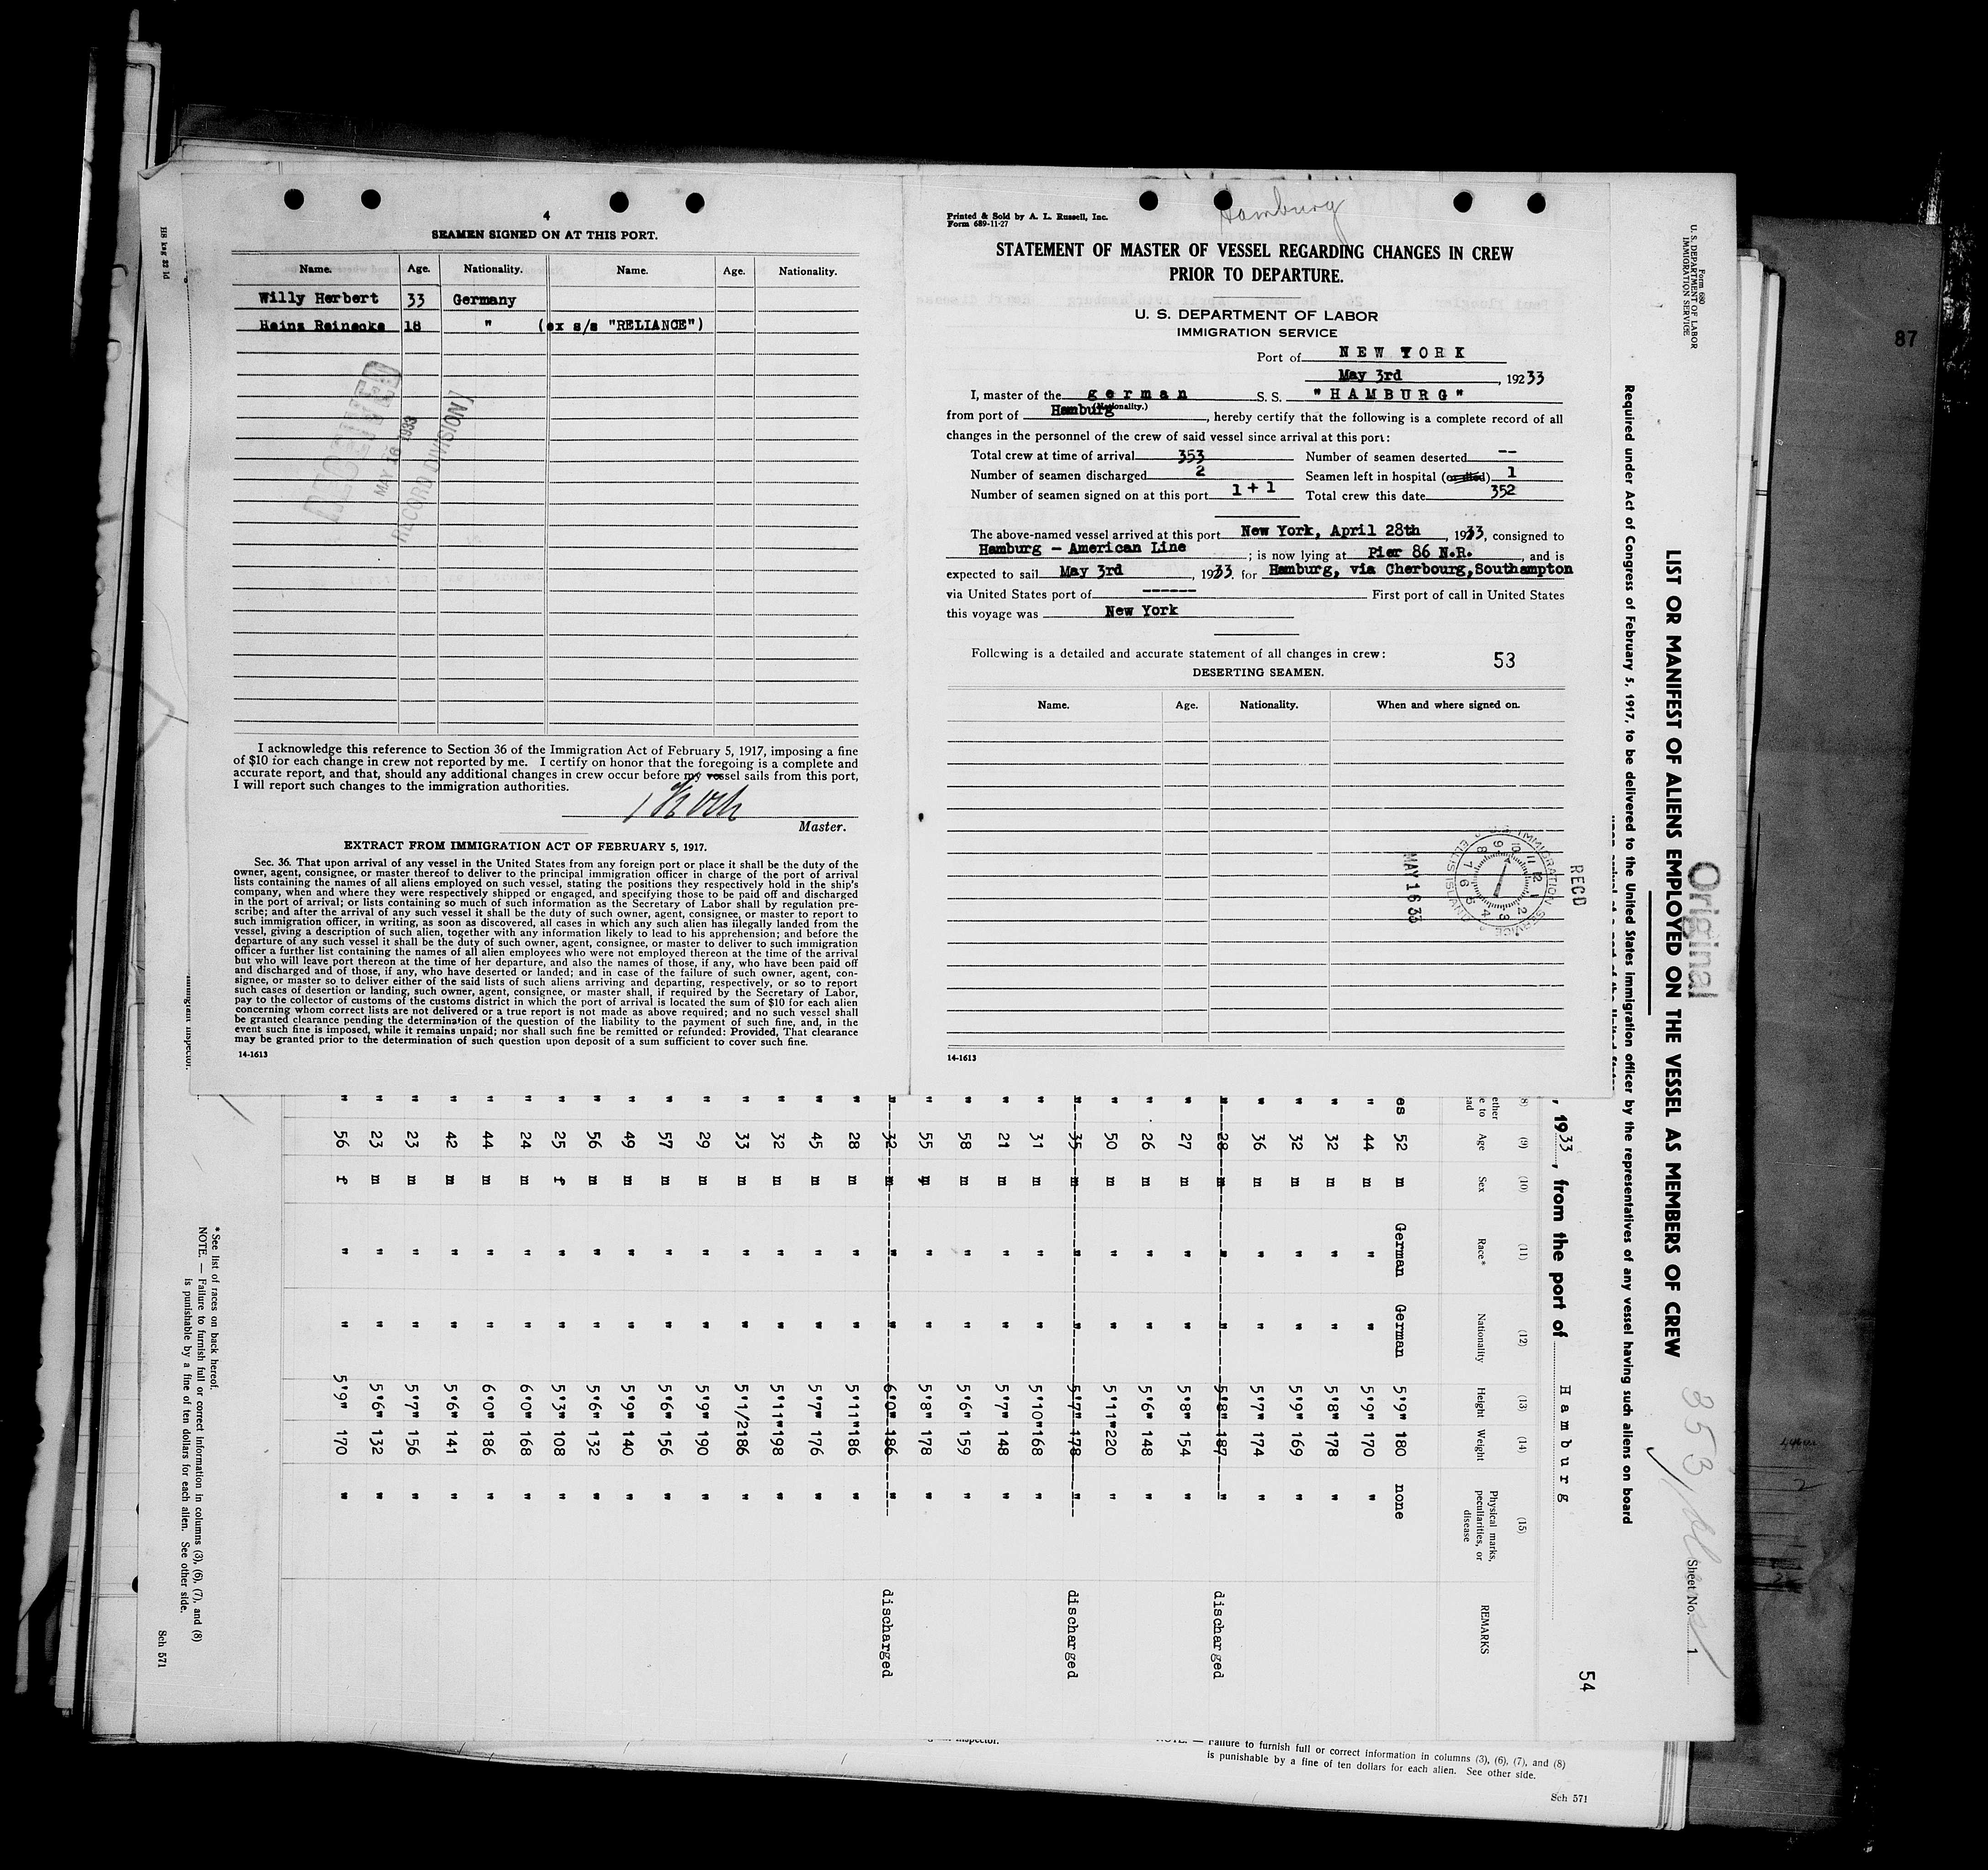 4
SEAMEN SIGNED ON AT THIS PORT.
Name. Age. Nationality. Name. Age. Nationality.
Willy Herbert 33 Germany
Heinz Reinecke 18 " (ex s/s "RELIANCE")
RECEIVED
MAY 16 1933
RECORD DIVISION
I acknowledge this reference to Section 36 of the Immigration Act of February 5, 1917, imposing a fine
of $10 for each change in crew not reported by me. I certify on honor that the foregoing is a complete and
accurate report, and that, should any additional changes in crew occur before my vessel sails from this port,
I will report such changes to the immigration authorities.
Master.
EXTRACT FROM IMMIGRATION ACT OF FEBRUARY 5, 1917.
Sec. 36. That upon arrival of any vessel in the United States from any foreign port or place it shall be the duty of the
owner, agent, consignee, or master thereof to deliver to the principal immigration officer in charge of the port of arrival
lists containing the names of all aliens employed on such vessel, stating the positions they respectively hold in the ship's
company, when and where they were respectively shipped or engaged, and specifying those to be paid off and discharged
in the port of arrival; or lists containing so much of such information as the Secretary of Labor shall by regulation pre-
scribe; and after the arrival of any such vessel it shall be the duty of such owner, agent, consignee, or master to report to
such immigration officer, in writing, as soon as discovered, all cases in which any such alien has illegally landed from the
vessel, giving a description of such alien, together with any information likely to lead to his apprehension; and before the
departure of any such vessel it shall be the duty of such owner, agent, consignee, or master to deliver to such immigration
officer a further list containing the names of all alien employees who were not employed thereon at the time of the arrival
but who will leave port thereon at the time of her departure, and also the names of those, if any, who have been paid off
and discharged and of those, if any, who have deserted or landed; and in case of the failure of such owner, agent, con-
signee, or master so to deliver either of the said lists of such aliens arriving and departing, respectively, or so to report
such cases of desertion or landing, such owner, agent, consignee, or master shall, if required by the Secretary of Labor,
pay to the collector of customs of the customs district in which the port of arrival is located the sum of $10 for each alien
concerning whom correct lists are not delivered or a true report is not made as above required; and no such vessel shall
be granted clearance pending the determination of the question of the liability to the payment of such fine, and, in the
event such fine is imposed, while it remains unpaid; nor shall such fine be remitted or refunded: Provided, That clearance
may be granted prior to the determination of such question upon deposit of a sum sufficient to cover such fine.
14-1613
Hamburg
Printed & Sold by A. L. Russell, Inc.
Form 689-11-27
STATEMENT OF MASTER OF VESSEL REGARDING CHANGES IN CREW
PRIOR TO DEPARTURE.
U. S. DEPARTMENT OF LABOR
IMMIGRATION SERVICE
Port of NEW YORK
May 3rd, 19233
I, master of the german S. S. "HAMBURG"
(Nationality.)
from port of Hamburg, hereby certify that the following is a complete record of all
changes in the personnel of the crew of said vessel since arrival at this port:
Total crew at time of arrival 353 Number of seamen deserted --
Number of seamen discharged 2 Seamen left in hospital (or died) 1
Number of seamen signed on at this port 1 + 1 Total crew this date 352
The above-named vessel arrived at this port New York, April 28th, 1933, consigned to
Hamburg - American Line; is now lying at Pier 86 N.R., and is
expected to sail May 3rd, 1933 for Hamburg, via Cherbourg, Southampton
via United States port of ------ First port of call in United States
this voyage was New York
Following is a detailed and accurate statement of all changes in crew: 53
DESERTING SEAMEN.
Name. Age. Nationality. When and where signed on.
RECD
MAY 16 33
IMMIGRATION SERVICE
ELLIS ISLAND
12 1 2 3 4 5 6 7 8 9 10 11
14-1613
87
Form 680
U. S. DEPARTMENT OF LABOR
IMMIGRATION SERVICE
Original
353
Sheet No. 1
LIST OR MANIFEST OF ALIENS EMPLOYED ON THE VESSEL AS MEMBERS OF CREW
Required under Act of Congress of February 5, 1917, to be delivered to the United States immigration officer by the representatives of any vessel having such aliens on board
, 1933, from the port of Hamburg
54
(9) (10) (11) (12) (13) (14) (15)
Age Sex Race* Nationality Height Weight Physical marks, peculiarities, or disease REMARKS
es 52 m German German 5'9" 180 none
" 44 m " " 5'9" 170 "
" 32 m " " 5'8" 178 "
" 32 m " " 5'9" 169 "
" 36 m " " 5'7" 174 "
" 28 m " " 5'8" 187 " discharged
" 27 m " " 5'8" 154 "
" 26 m " " 5'6" 148 "
" 50 m " " 5'11" 220 "
" 35 m " " 5'7" 178 " discharged
" 31 m " " 5'10" 168 "
" 21 m " " 5'7" 148 "
" 58 m " " 5'6" 159 "
" 55 m " " 5'8" 178 "
" 32 m " " 6'0" 186 " discharged
" 28 m " " 5'11" 186 "
" 45 m " " 5'7" 176 "
" 32 m " " 5'11" 198 "
" 33 m " " 5'1/2 186 "
" 29 m " " 5'9" 190 "
" 57 m " " 5'6" 156 "
" 49 m " " 5'9" 140 "
" 56 m " " 5'6" 132 "
" 25 f " " 5'3" 108 "
" 24 m " " 6'0" 168 "
" 44 m " " 6'0" 186 "
" 42 m " " 5'6" 141 "
" 23 m " " 5'7" 156 "
" 23 m " " 5'6" 132 "
" 56 f " " 5'9" 170 "
* See list of races on back hereof.
NOTE. — Failure to furnish full or correct information in columns (3), (6), (7), and (8)
is punishable by a fine of ten dollars for each alien. See other side.
Sch 571
Immigrant Inspector.
NOTE. — Failure to furnish full or correct information in columns (3), (6), (7), and (8)
is punishable by a fine of ten dollars for each alien. See other side.
Sch 571